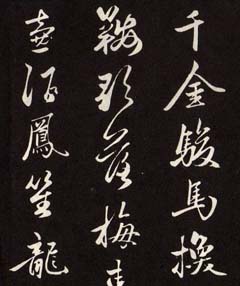 千金駿馬換
鞍歌落梅
壺酒鳳笙龍